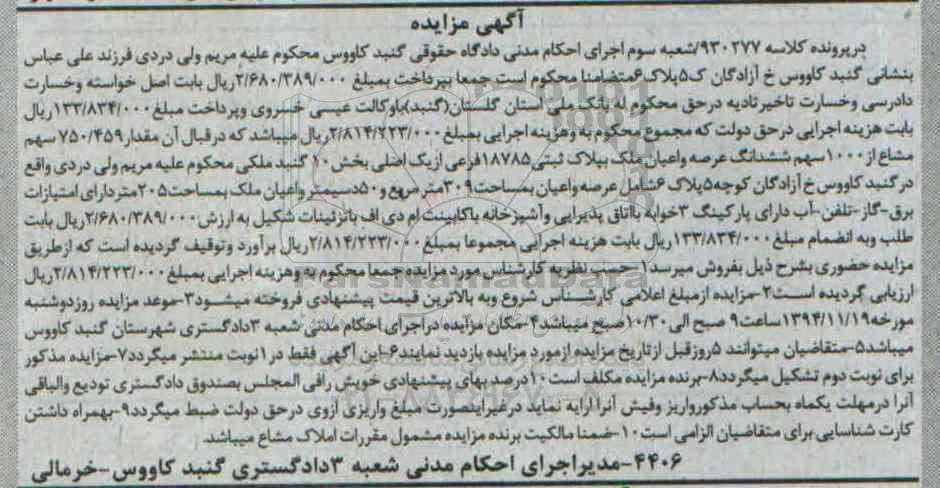 آگهی مزایده
درپرونده کلاسه ۹۳۰۲۷۷/شعبه سوم اجرای احکام مدنی دادگاه حقوقی گنبد کاووس محکوم علیه مریم ولی دردی فرزند علی عباس
بنشانی گنبد کاووس خ آزادگان ک۵پلاک۶متضامنا محکوم است جمعا بپرداخت بمبلغ ۲/۶۸۰/۳۸۹/۰۰۰ریال بابت اصل خواسته وخسارت
دادرسی وخسارت تاخیرتادیه درحق محکوم له بانک ملی استان گلستان(گنبد)باوکالت عیسی خسروی وپرداخت مبلغ۱۳۳/۸۳۴/۰۰۰ریال
بابت هزینه اجرایی درحق دولت که مجموع محکوم به وهزینه اجرایی بمبلغ۲/۸۱۴/۲۲۳/۰۰۰ریال میباشد که درقبال آن مقدار۷۵۰/۴۵۹ سهم
مشاع از۱۰۰۰سهم ششدانگ عرصه واعیان ملک بپلاک ثبتی۱۸۷۸۵فرعی ازیک اصلی بخش۱۰ گنبد ملکی محکوم علیه مریم ولی دردی واقع
درگنبد کاووس خ آزادگان کوچه۵پلاک ۶شامل عرصه واعیان بمساحت۳۰۹متر مربع و۵۰دسیمتر واعیان ملک بمساحت۲۰۵متردارای امتیازات
برق-گاز-تلفن-آب دارای پارکینگ ۳خوابه بااتاق پذیرایی وآشپزخانه باکابینت ام دی اف باتزئینات شکیل به ارزش۲/۶۸۰/۳۸۹/۰۰۰ریال بابت
طلب وبه انضمام مبلغ۱۳۳/۸۳۴/۰۰۰ریال بابت هزینه اجرایی مجموعا بمبلغ۲/۸۱۴/۲۲۳/۰۰۰ریال برآورد وتوقیف گردیده است که ازطریق
مزایده حضوری بشرح ذیل بفروش میرسد۱-حسب نظریه کارشناس مورد مزایده جمعا محکوم به وهزینه اجرایی بمبلغ۲/۸۱۴/۲۲۳/۰۰۰ریال
ارزیابی گردیده است۲-مزایده ازمبلغ اعلامی کارشناس شروع وبه بالاترین قیمت پیشنهادی فروخته میشود۳-موعد مزایده روزدوشنبه
مورخه۱۳۹۴/۱۱/۱۹ساعت۹ صبح الی۱۰/۳۰صبح میباشد۴-مکان مزایده دراجرای احکام مدنی شعبه ۳دادگستری شهرستان گنبد کاووس
میباشد۵-متقاضیان میتوانند ۵روزقبل ازتاریخ مزایده ازمورد مزایده بازدید نمایند۶-این آگهی فقط در۱نوبت منتشر میگردد۷-مزایده مذکور
برای نوبت دوم تشکیل میگردد۸-برنده مزایده مکلف است۱۰درصد بهای پیشنهادی خویش رافی المجلس بصندوق دادگستری تودیع والباقی
آنرا درمهلت یکماه بحساب مذکورواریز وفیش آنرا ارایه نماید درغیراینصورت مبلغ واریزی ازوی درحق دولت ضبط میگردد۹-بهمراه داشتن
کارت شناسایی برای متقاضیان الزامی است۱۰-ضمنا مالکیت برنده مزایده مشمول مقررات املاک مشاع میباشد.
۴۴۰۶-مدیراجرای احکام مدنی شعبه ۳دادگستری گنبد کاووس-خرمالی
ParsNamadData